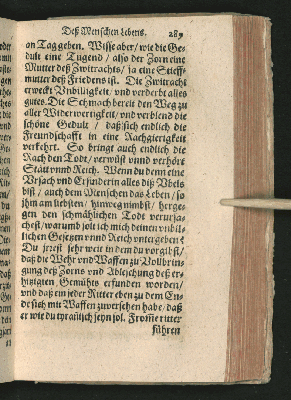 Deß Menschen Lebens. 289
an Tag geben. Wisse aber/ wie die Ge-
dult eine Tugend / also der Zorn eine
Mutter deß Zwitrachts/ ja eine Stieff-
mutter deß Friedens ist. Die Zwitracht
erweckt Unbilligkeit/ vnd verderbt alles
gutes. Die Schmach bereit den Weg zu
aller Widerwertigkeit/ vnd verblend die
schöne Gedult / daß sich endlich die
Freundschafft in eine Rachgierigkeit
verkehrt. So bringt auch endlich die
Rach den Todt/ verwüst vnnd verhört
Stätt vnnd Reich. Wenn du denn eine
Vrsach vnd Erfinderin alles diß Vbels
bist / auch dem Menschen das Leben / so
jhm am liebsten/ hinweg nimbst/ herge-
gen den schmählichen Todt verursa-
chest/ warumb solt ich mich deinen vnbil-
lichen Gesetzen vnnd Reich vntergeben?
Du jrrest sehr weit in dem du vorgibst/
daß die Wehr vnd Waffen zu Vollbrin-
gung deß Zorns vnd Ableschung deß er-
hitzigten Gemühts erfunden worden/
vnd daß ein jeder Ritter eben zu dem En-
de sich mit Waffen zuversehen habe/ daß
er wie du tyrannisch seyn sol. Fromme ritter
führen